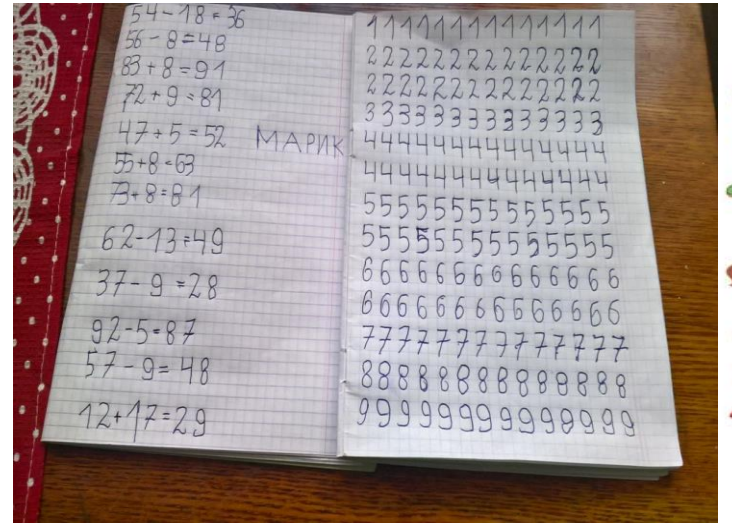 54-18=36
56-8=48
83+8=91
72+9=81
47+5=52
МАРИК
55+8=63
73+8=81
62-13=49
37-9=28
92-5=87
57-9=48
12+17=29
11111111111111
22222222222222
22222222222222
33333333333333
44444444444444
44444444444444
55555555555555
55555555555555
66666666666666
66666666666666
77777777777777
88888888888888
99999999999999